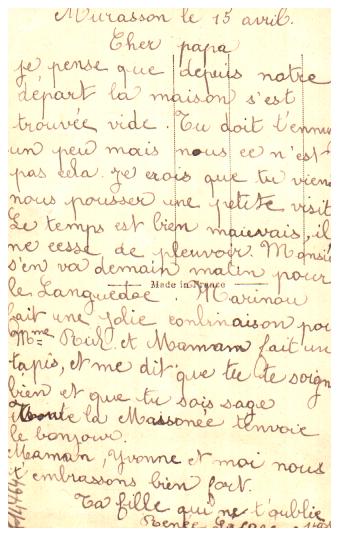 Murasson le 15 avril.
Cher papa
je pense que depuis notre
départ la maison s'est
trouvée vide. Tu doit t'ennu
un peu mais nous ce n'est
pas cela. Je crois que tu viend
nous pousser une petite visit
Le temps est bien mauvais, il
ne cesse de pleuvoir. Monsie
s'en va demain matin pour
Made in France
le Languedoc. Marinou
fait une jolie conbinaison pou
Mme Riv. et Mamam fait un
tapis, et me dit que tu te soign
bien et que tu sois sage
la Massonée t'envoie
le bonjour.
Maman, Yvonne et moi nous
t'embrassons bien fort.
Ta fille qui ne t'oublie
Renée